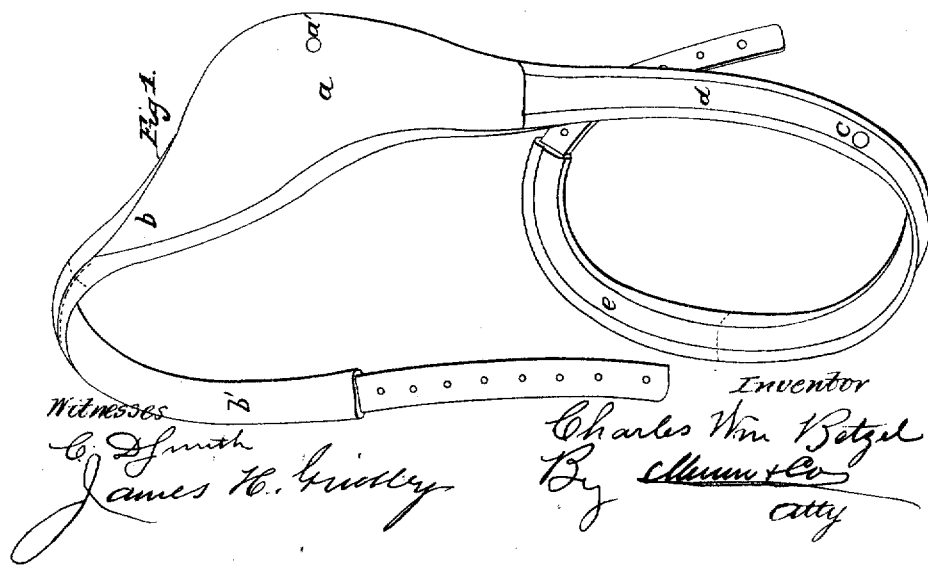 Fig 1.
a'
a
b
d
c
e
b'
Witnesses
C. D Smith
James H. Gridley
Inventor
Charles Wm Betzel
By Munn & Co
atty